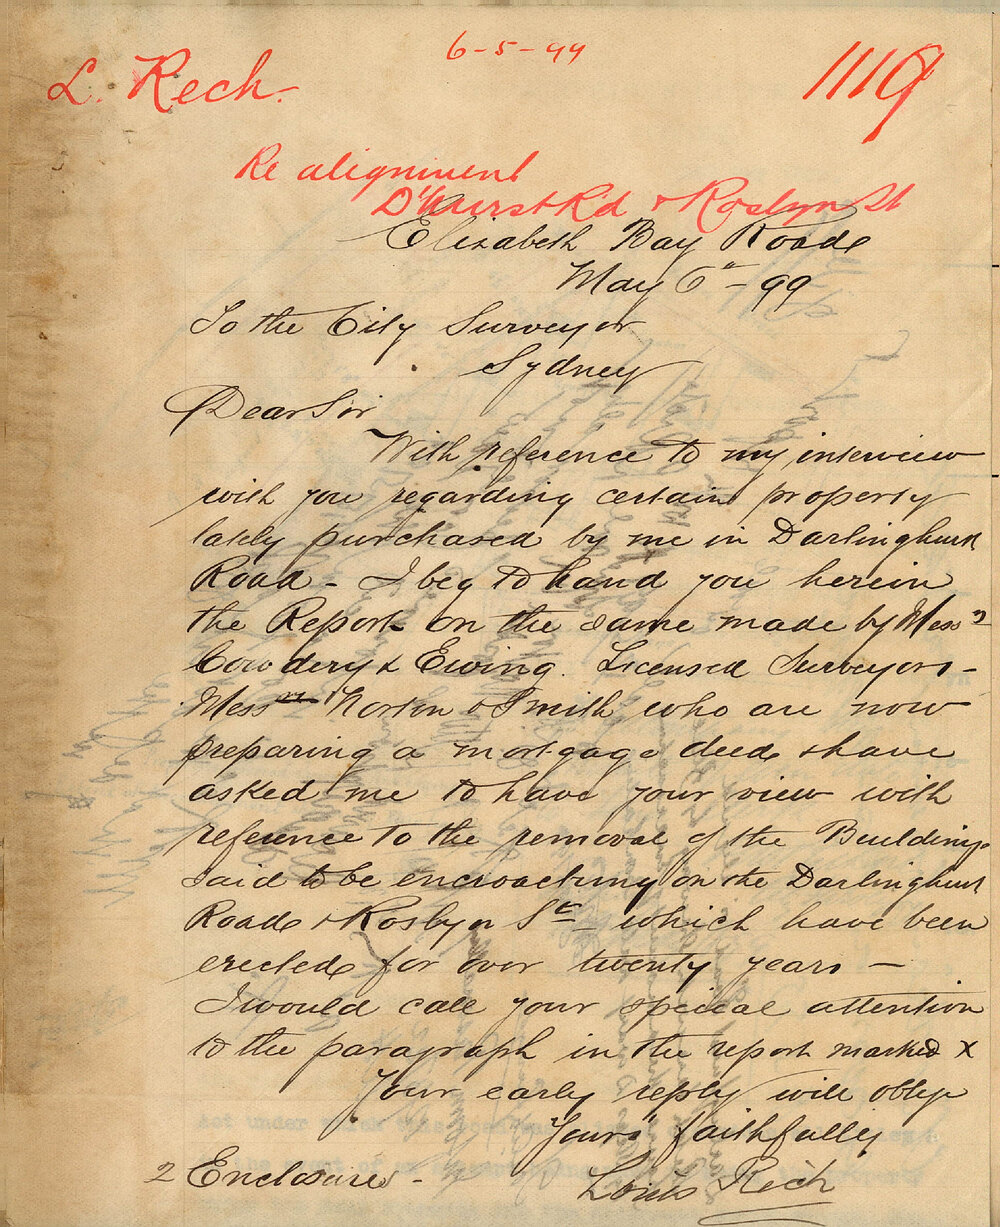 6-5-99
L. Rech.
1119
Re alignment
D'hurst Rd & Roslyn St
Elizabeth Bay Road
May 6th - 99
To the City Surveyor
Sydney
Dear Sir
With reference to my interview
with you regarding certain property
lately purchased by me in Darlinghurst
Road - I beg to hand you herein
the Report on the same made by Messrs
Cowdery & Ewing. Licensed Surveyors -
Messrs Norton & Smith who are now
preparing a mortgage deed & have
asked me to have your view with
reference to the removal of the Buildings
said to be encroaching on the Darlinghurst
Road & Roslyn St - which have been
erected for over twenty years -
I would call your special attention
to the paragraph in the report marked X
Your early reply will oblige
Yours faithfully
Louis Rech
2 Enclosures -